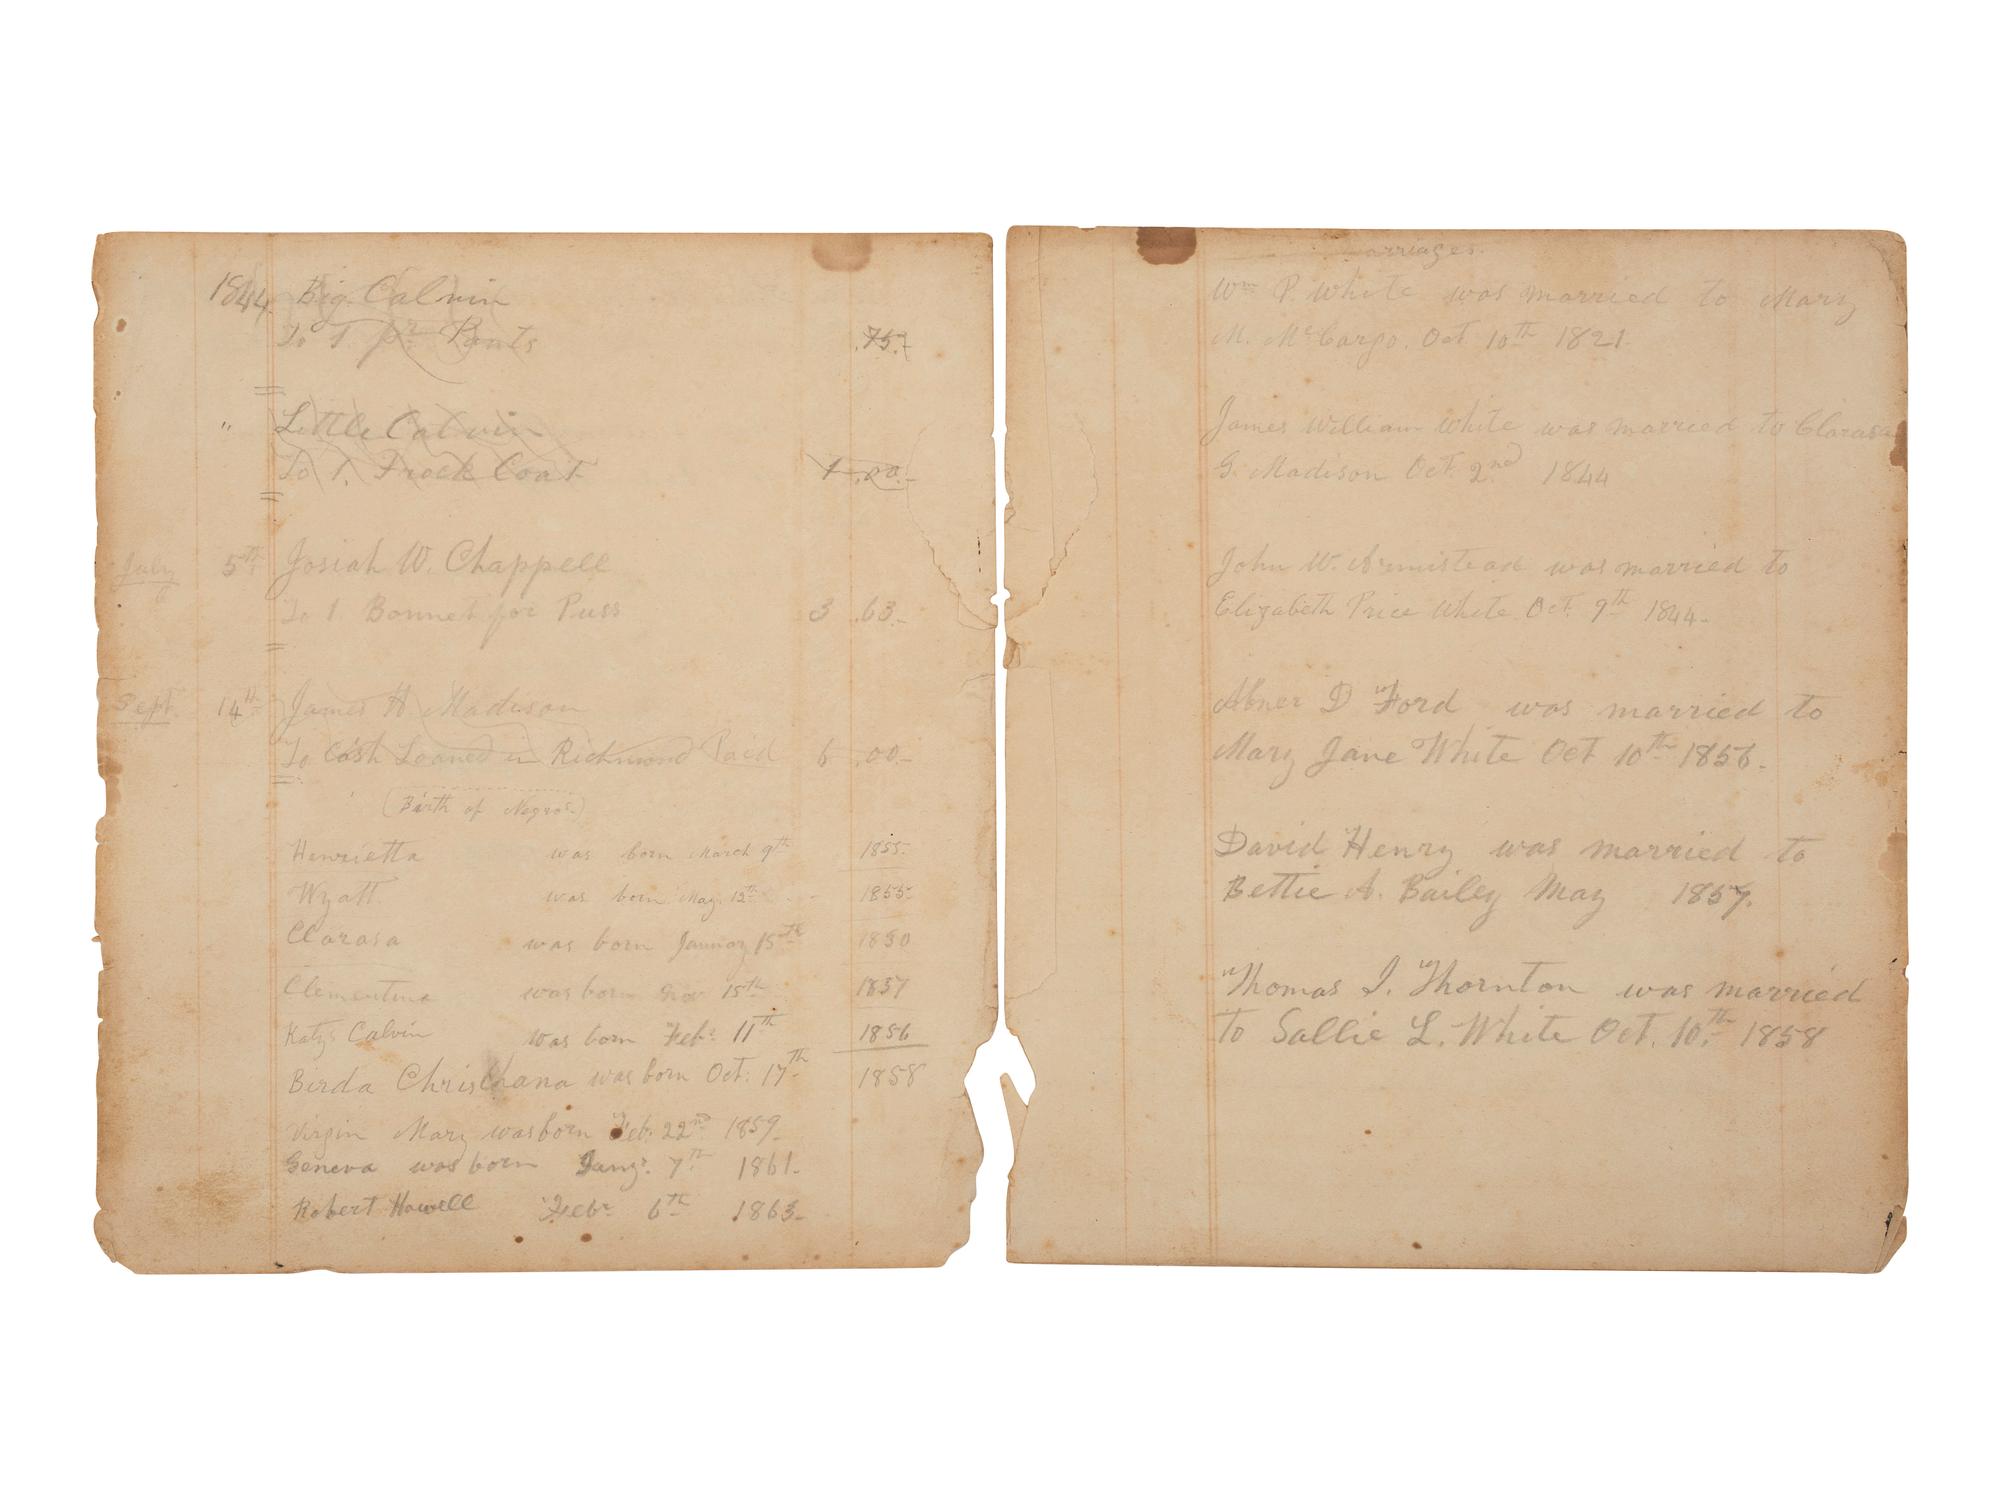 1844 Big Calvin
To 1 pr Pants .75.
" Little Calvin
To 1. Frock Coat 1.00.
July 5th Josiah W. Chappell
To 1. Bonnet for Puss 3.63.
Sept. 14th James H. Madison
To Cash Loaned in Richmond Paid 6.00
(Birth of Negros.)
Henrietta was born March 9th 1855.
Wyatt was born May. 12th 1855.
Clarasa was born January 15th 1850
Clementina was born Nov 15th 1857
Katys Calvin was born Feb. 11th 1856
Birda Christiana was born Oct. 17th 1858
Virgin Mary was born Feb. 22nd 1859
Geneva was born Jany. 7th 1861.
Robert Howell Feb. 6th 1863.
arriages.
Wm P. White was married to Mary
M. McCargo. Oct 10th 1821.
James William White was married to Clarasa
G. Madison Oct. 2nd 1844
John W. Armistead was married to
Elizabeth Price White Oct. 9th 1844.
Abner D Ford was married to
Mary Jane White Oct 10th 1856.
David Henry was married to
Bettie A. Bailey May 1857.
Thomas J. Thornton was married
to Sallie L. White Oct. 10th 1858